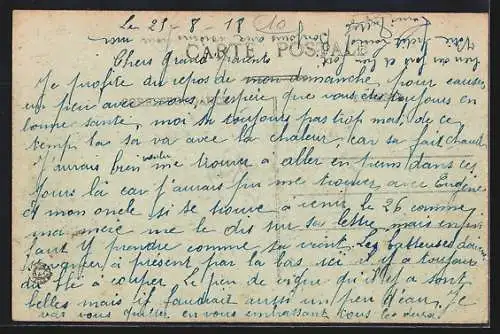 Le 25-8-18
CARTE POSTALE
Chers grands parents
Je profite du repos de mon dimanche, pour causer
un peu avec vous, j'espère que vous êtes toujours en
bonne santé, moi sa toujours pas trop mal, de ce
temp la sa va avec la chaleur, car sa fait chaud
J'aurais bien voulu me trouver a aller en perm dans ces
jours là car j'aurais pu me trouver avec Eugène
et mon oncle si se trouve a venir le 26 comme
ma mère me le dis sur sa lettre mais enfin
faut y prendre comme sa vient. Les batteuses doivent
à présent par la bas ici il y a toujour
du blé a couper. Le peu de vigne qu'il y a sont
belles mais il faudrait aussi un peu d'eau. Je
vais vous quitter en vous embrassant tous les deux